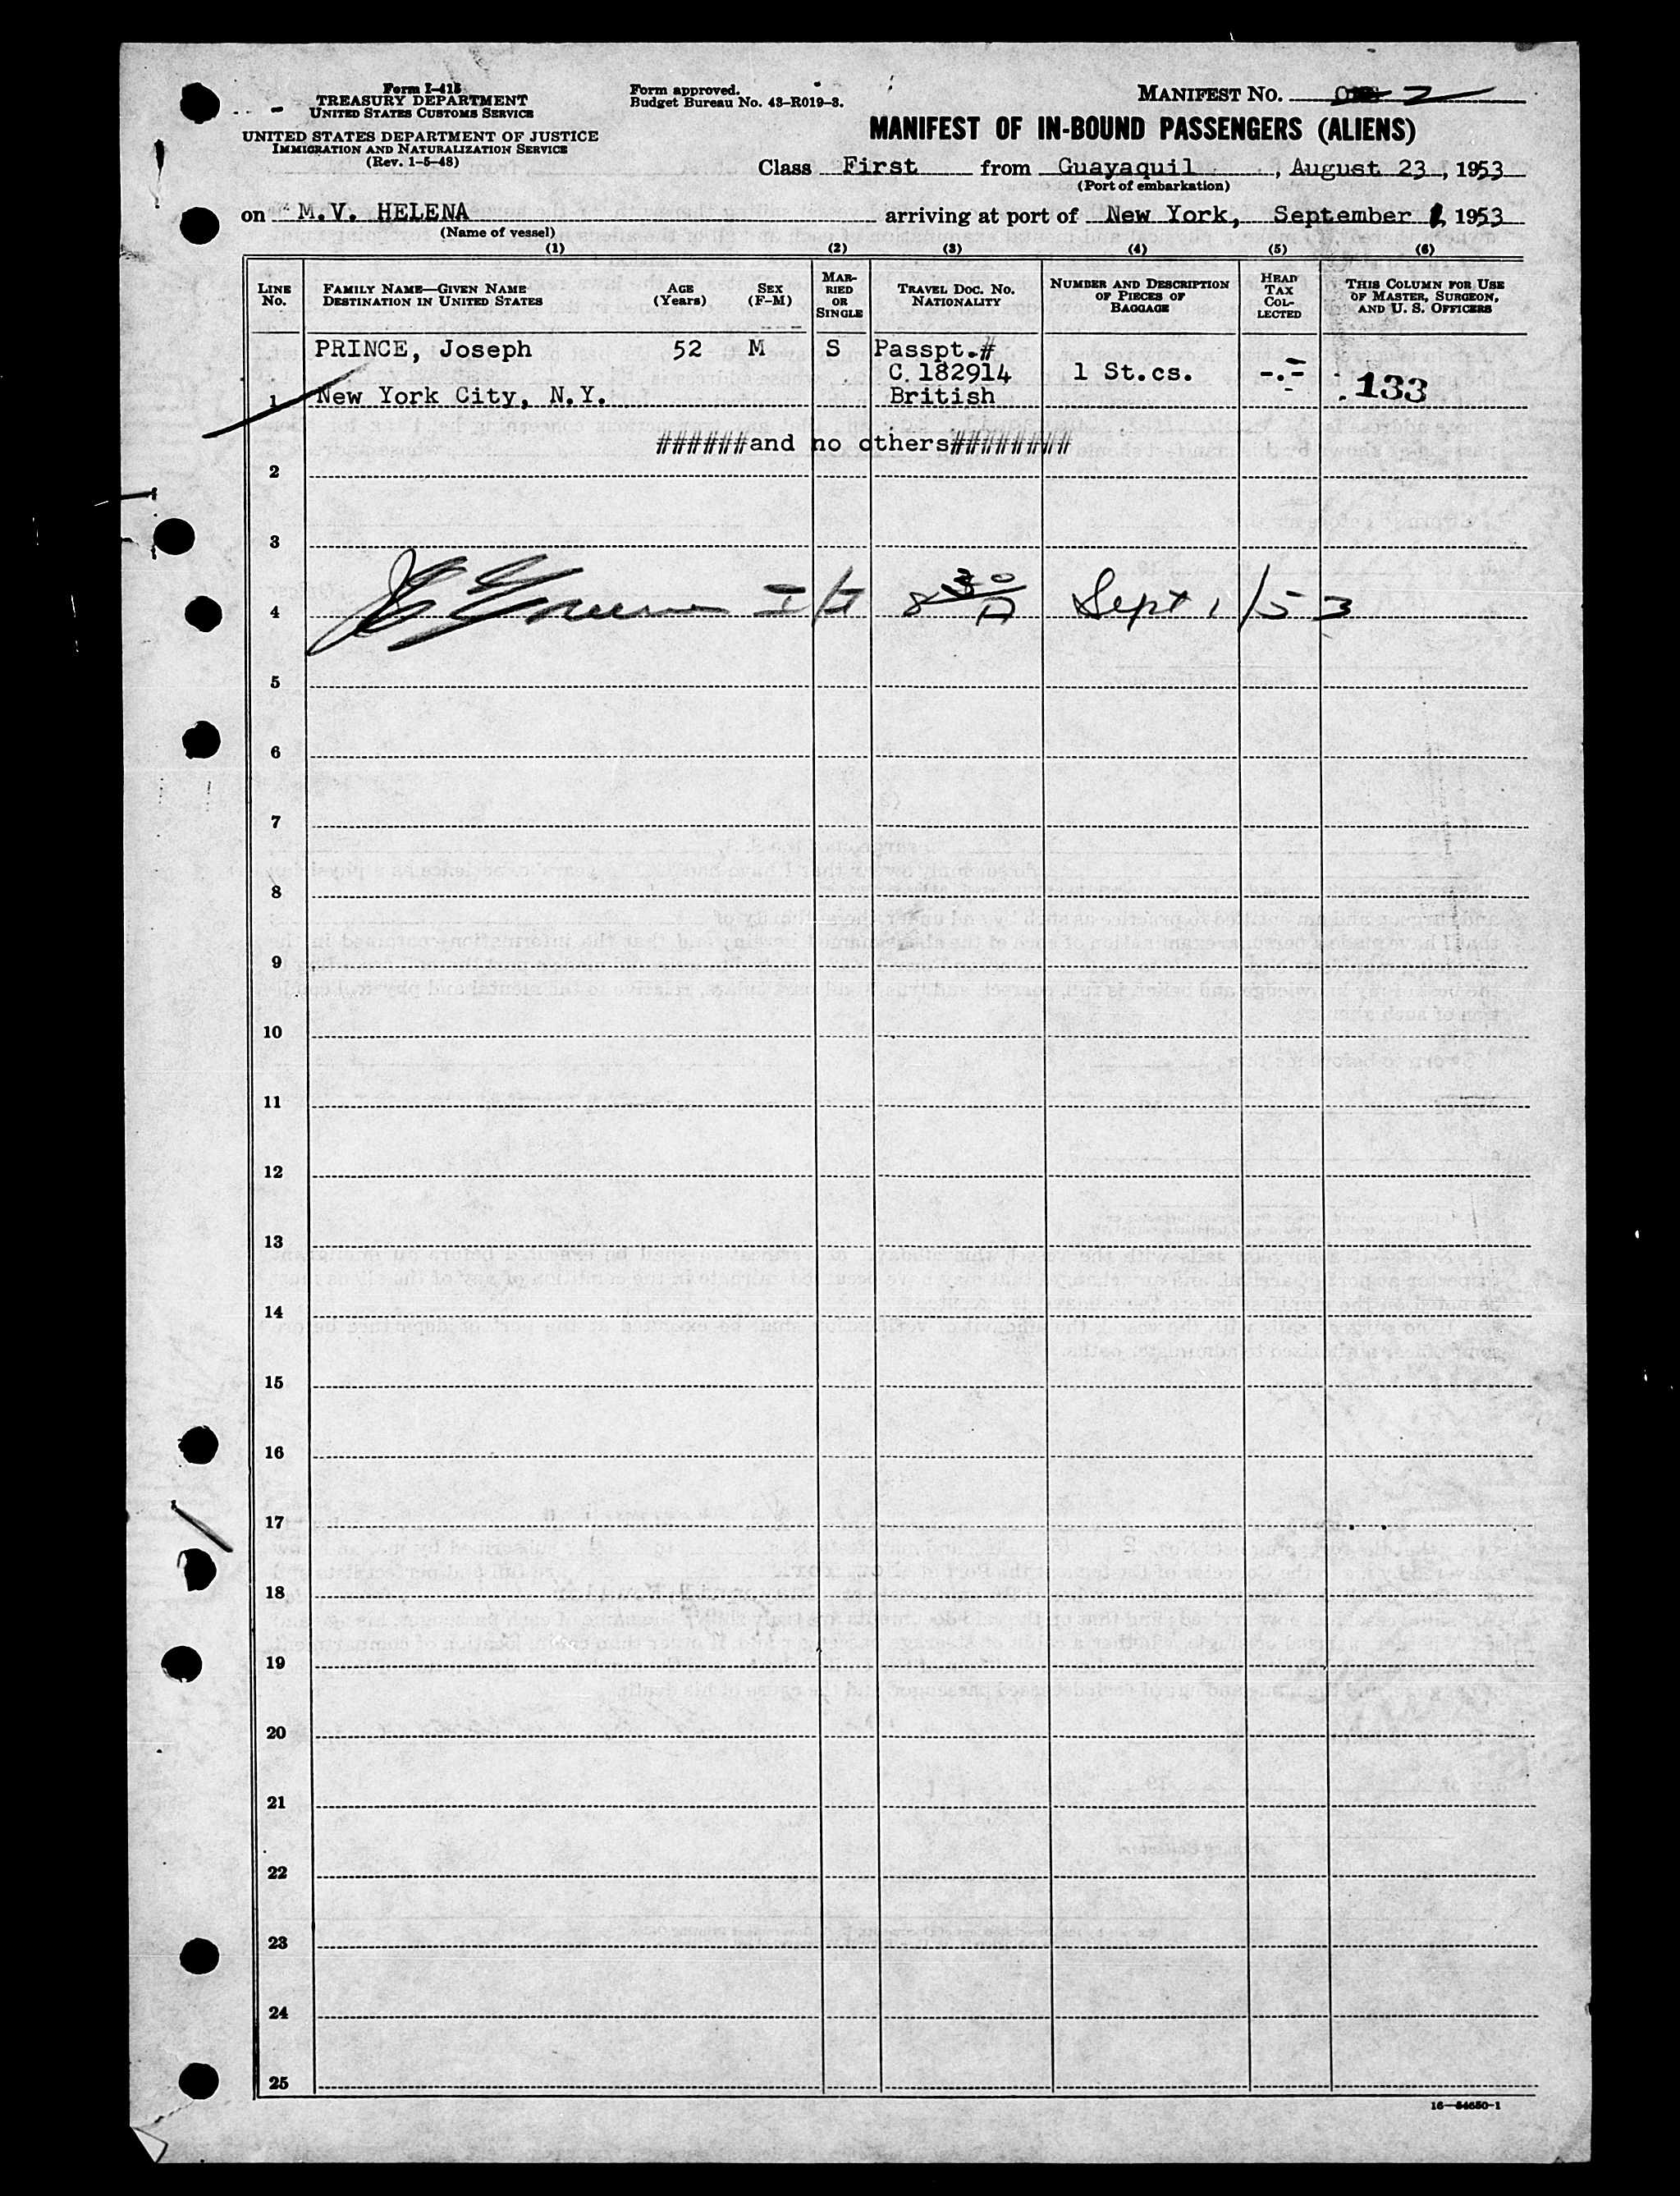 Form I-418
TREASURY DEPARTMENT
UNITED STATES CUSTOMS SERVICE
UNITED STATES DEPARTMENT OF JUSTICE
IMMIGRATION AND NATURALIZATION SERVICE
(Rev. 1-5-48)
Form approved.
Budget Bureau No. 43-R019-3.
MANIFEST NO. 2
MANIFEST OF IN-BOUND PASSENGERS (ALIENS)
Class First from Guayaquil, August 23, 1953
(Port of embarkation)
on M.V. HELENA arriving at port of New York, September 1, 1953
(Name of vessel)
(1) (2) (3) (4) (5) (6)
LINE NO. FAMILY NAME—GIVEN NAME DESTINATION IN UNITED STATES AGE (Years) SEX (F-M) MARRIED OR SINGLE TRAVEL DOC. NO. NATIONALITY NUMBER AND DESCRIPTION OF PIECES OF BAGGAGE HEAD TAX COLLECTED THIS COLUMN FOR USE OF MASTER, SURGEON, AND U. S. OFFICERS
PRINCE, Joseph 52 M S Passpt.#
C. 182914 1 St.cs. -.-
1 New York City, N.Y. British 133
######and no others########
2
3
4 Sept 1/53
5
6
7
8
9
10
11
12
13
14
15
16
17
18
19
20
21
22
23
24
25
16—54650-1